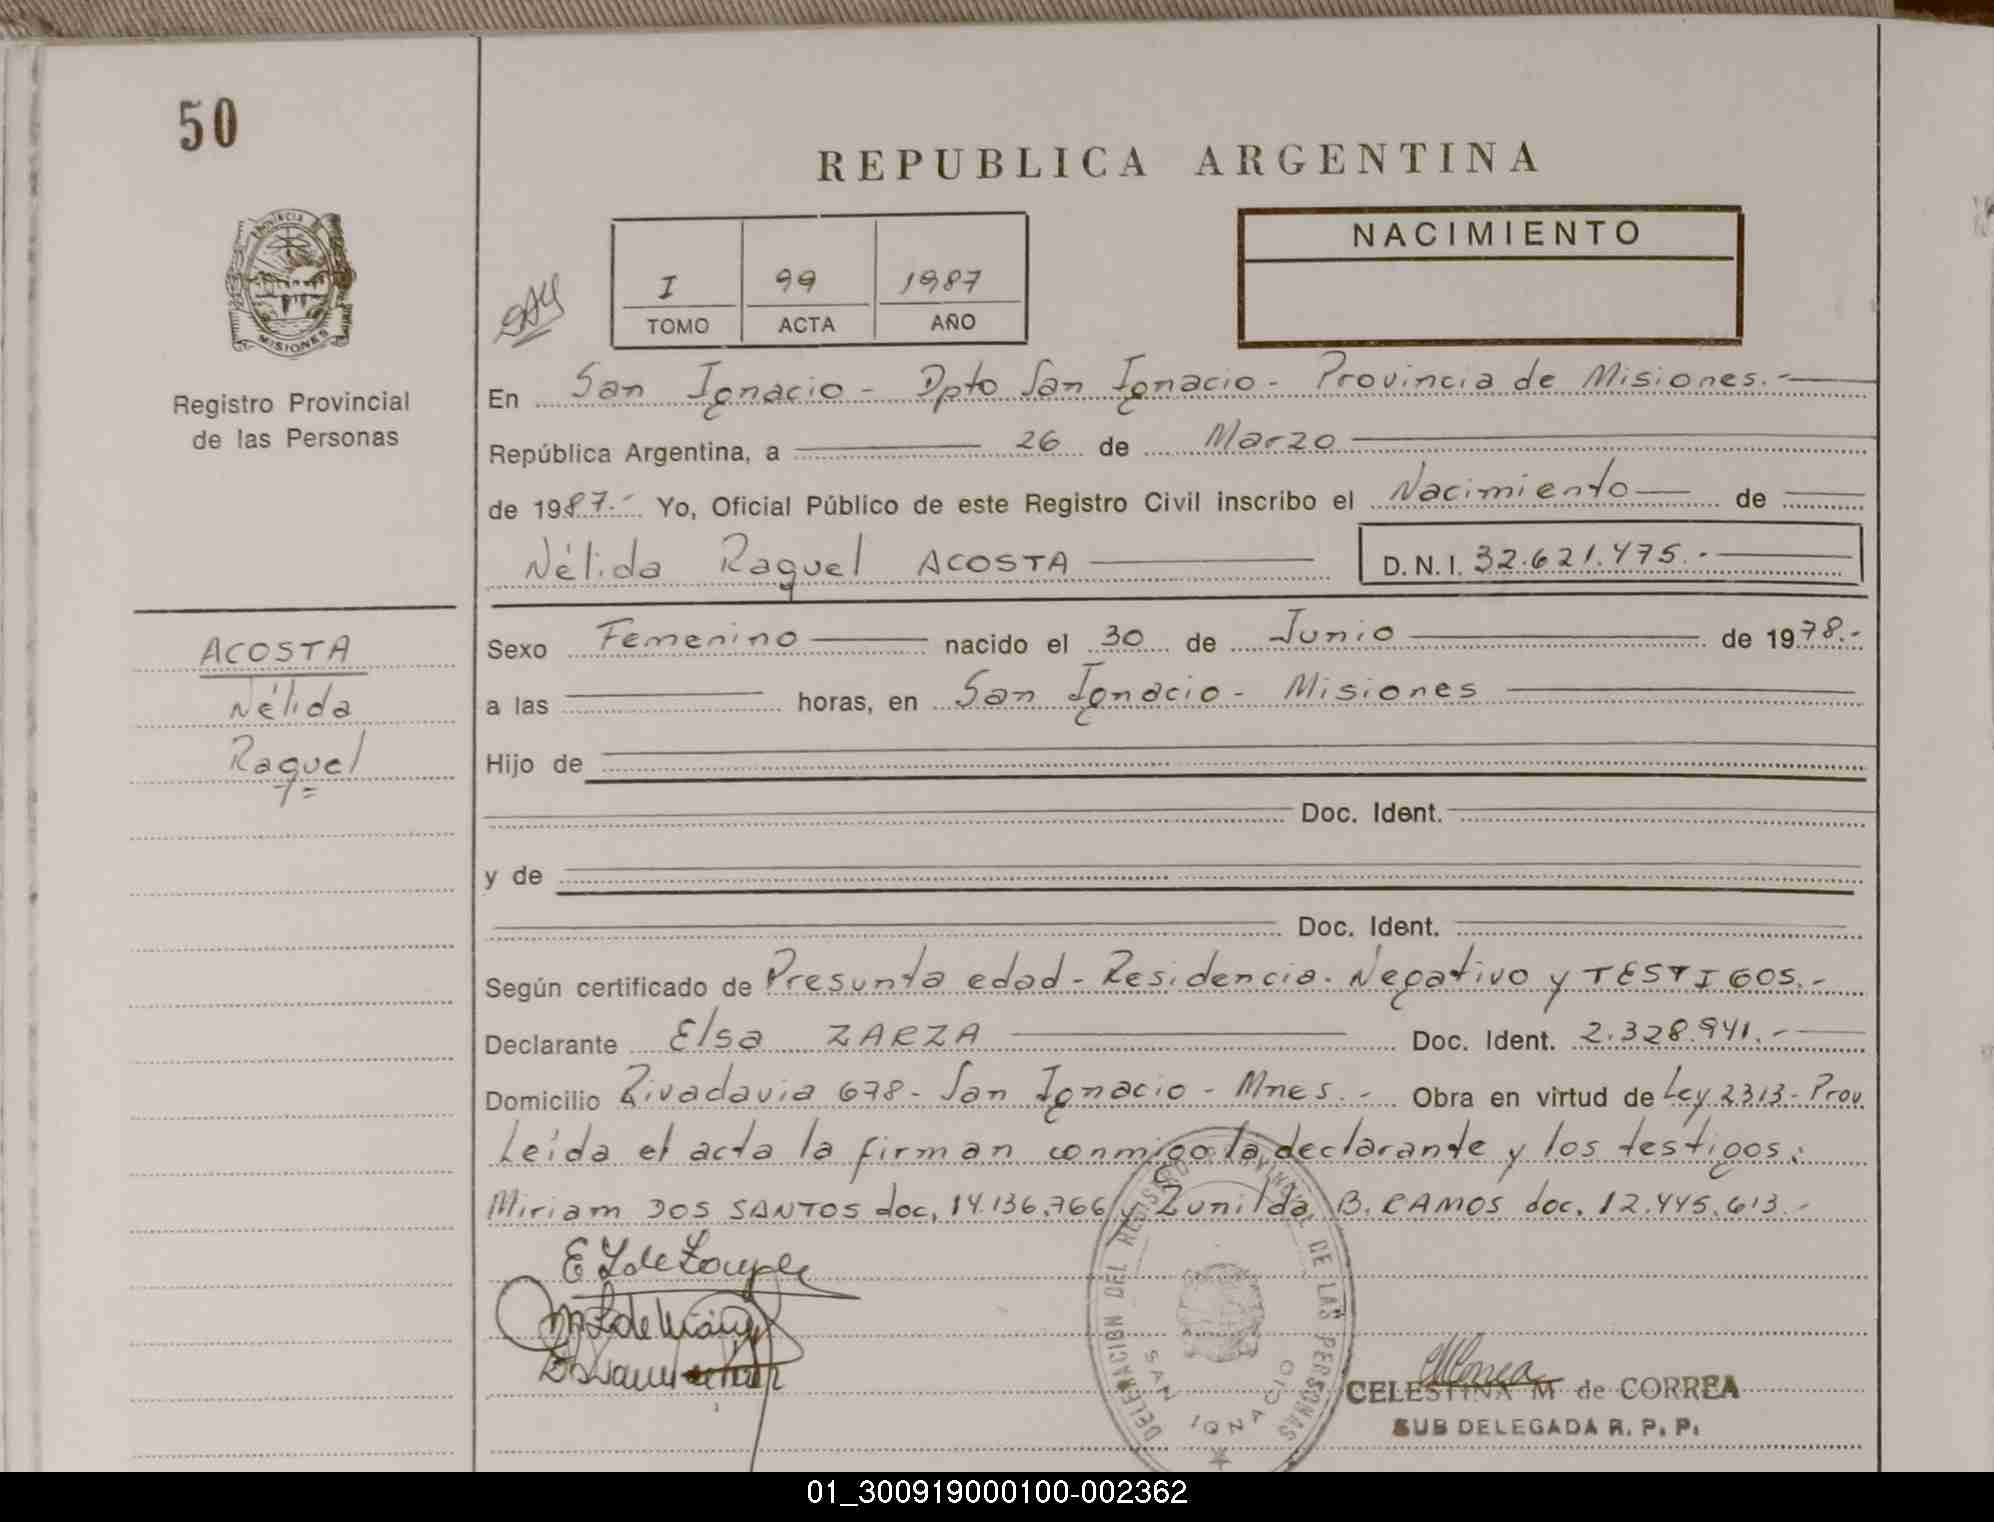 50
REPUBLICA ARGENTINA
PROVINCIA
MISIONES
Registro Provincial
de las Personas
I 99 1987
TOMO ACTA AÑO
NACIMIENTO
En San Ignacio - Dpto San Ignacio - Provincia de Misiones.-
República Argentina, a 26 de Marzo
de 1987.- Yo, Oficial Público de este Registro Civil inscribo el Nacimiento de
Nélida Raquel ACOSTA D.N.I. 32.621.475.-
ACOSTA
Nélida
Raquel
Sexo Femenino nacido el 30 de Junio de 1978.-
a las horas, en San Ignacio - Misiones
Hijo de
Doc. Ident.
y de
Doc. Ident.
Según certificado de Presunta edad - Residencia. Negativo y TESTIGOS.-
Declarante Elsa ZARZA Doc. Ident. 2.328.941.-
Domicilio Rivadavia 678 - San Ignacio - Mnes.- Obra en virtud de Ley 2313 - Prov.
Leída el acta la firman conmigo la declarante y los testigos:
Miriam DOS SANTOS doc. 14.136.766 y Zunilda B. RAMOS doc. 12.445.613.-
DELEGACION DEL REGISTRO PROVINCIAL DE LAS PERSONAS
SAN IGNACIO
CELESTINA M de CORREA
SUB DELEGADA R. P. P.
01_300919000100-002362